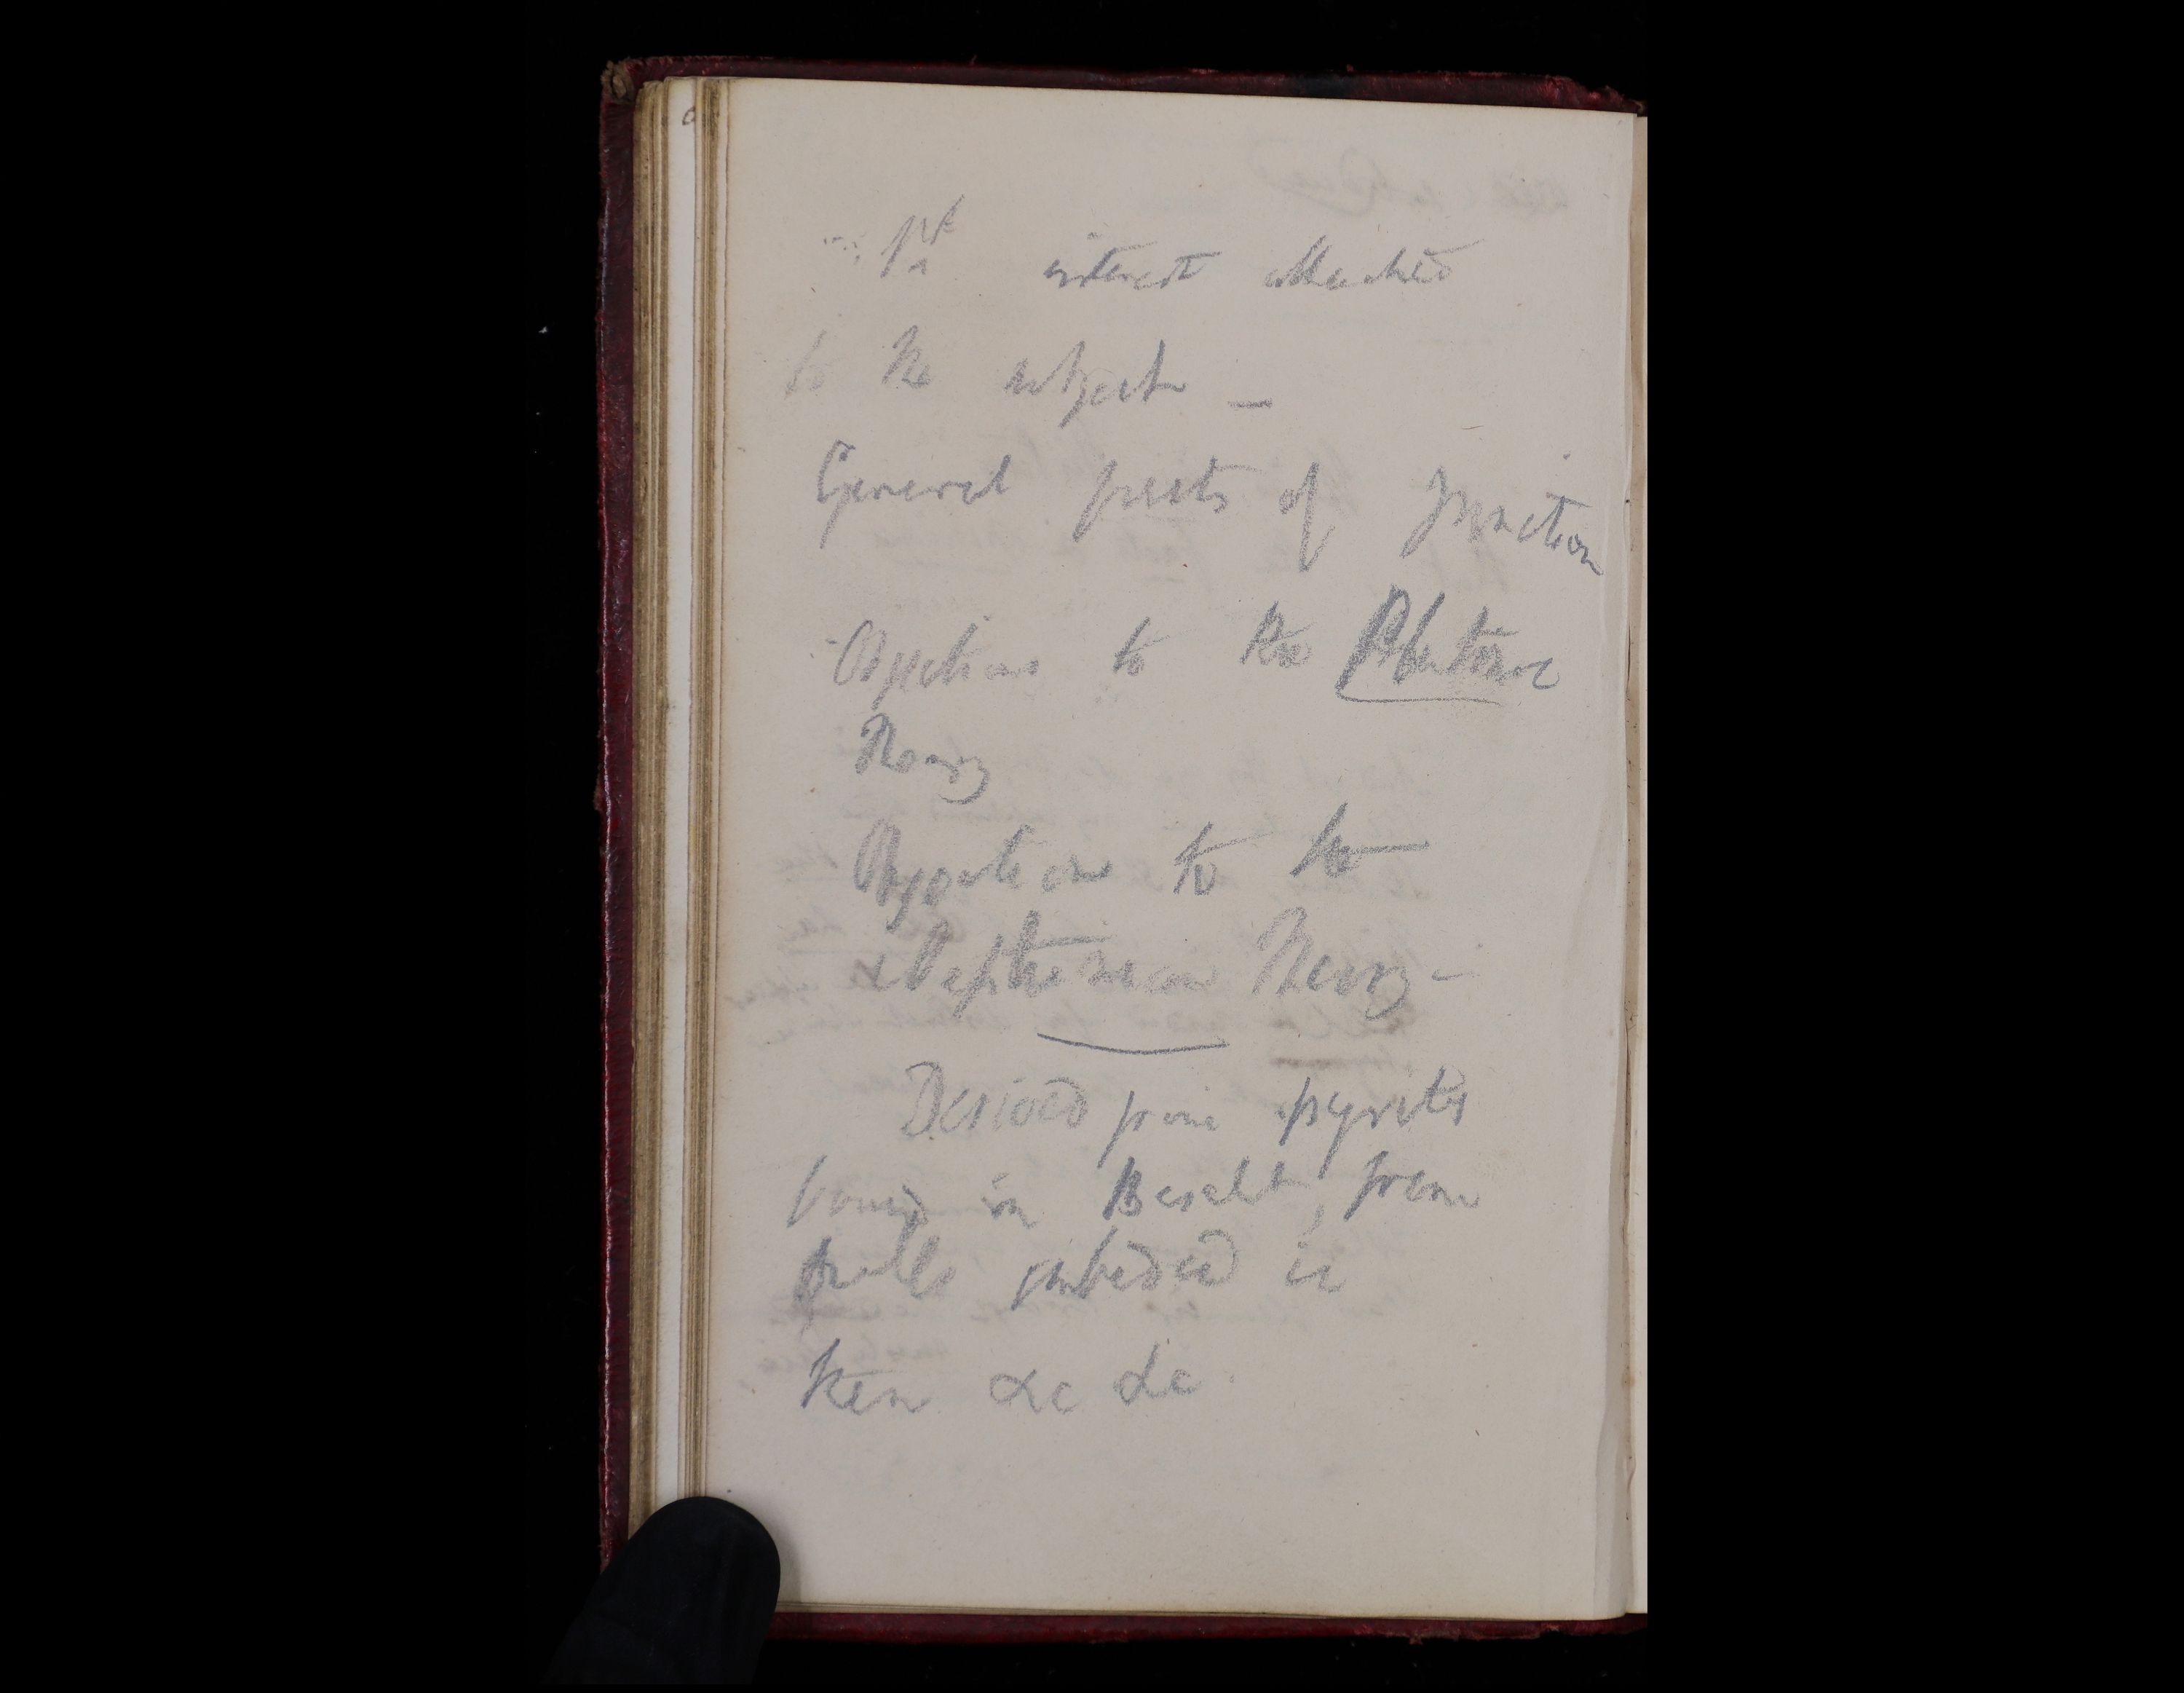 1st interest attached
to the subject –
General facts of Junction
Objections to the Plutonic
Theory
Objections to the
Neptunean Theory –
Derived from pyrites
found in Basalt, from
shells imbedded in
them &c &c